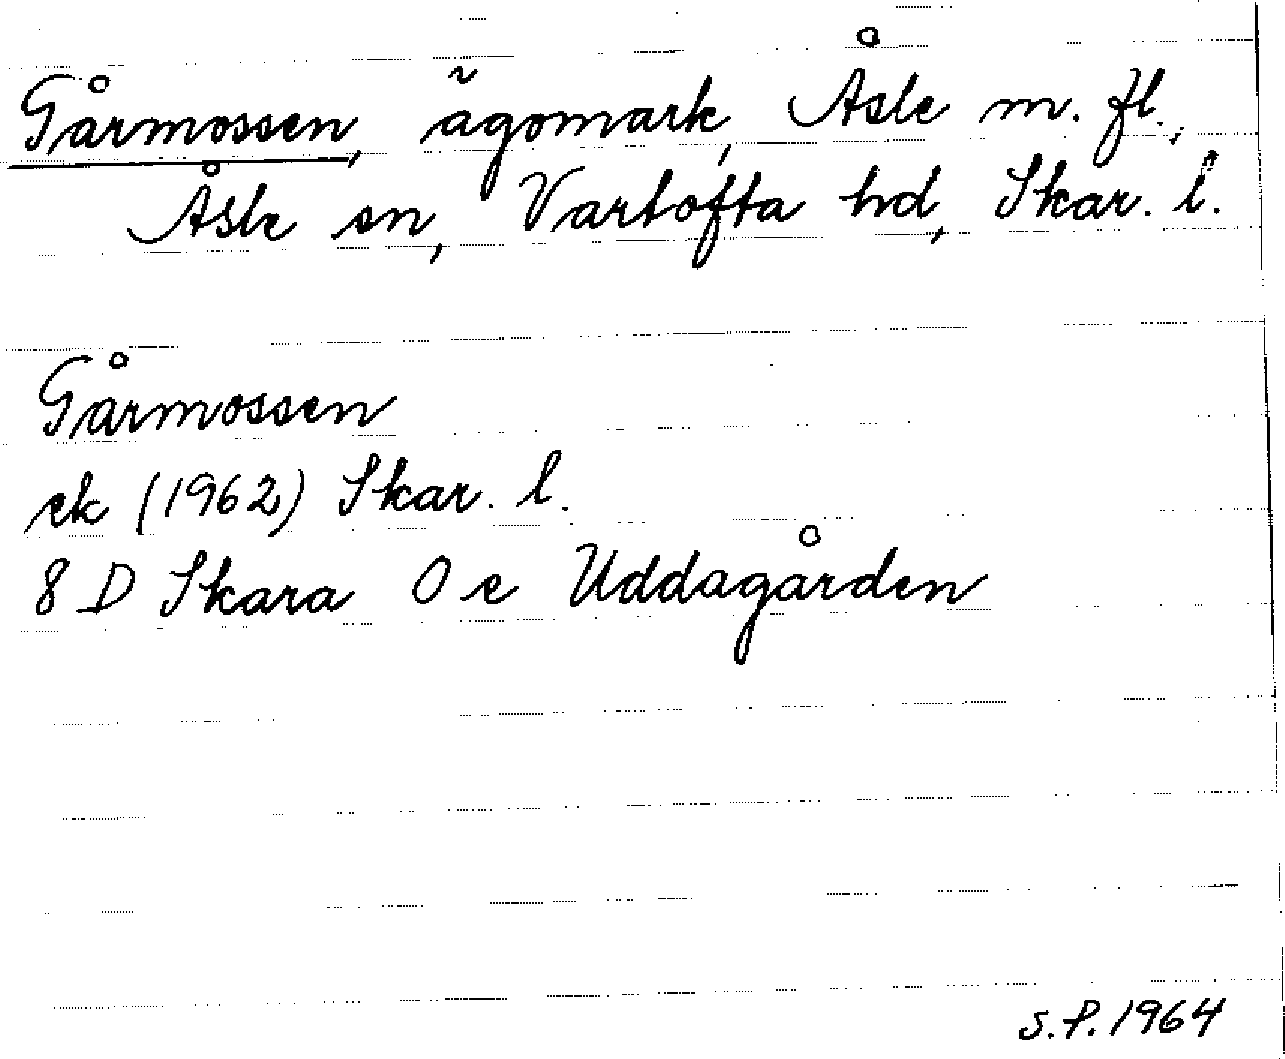 Gårmossen, ägomark, Åsle m. fl.,
Åsle sn, Vartofta hd, Skar. l.
Gårmossen
ek (1962) Skar. l.
8 D Skara 0 e Uddagården
S.P. 1964